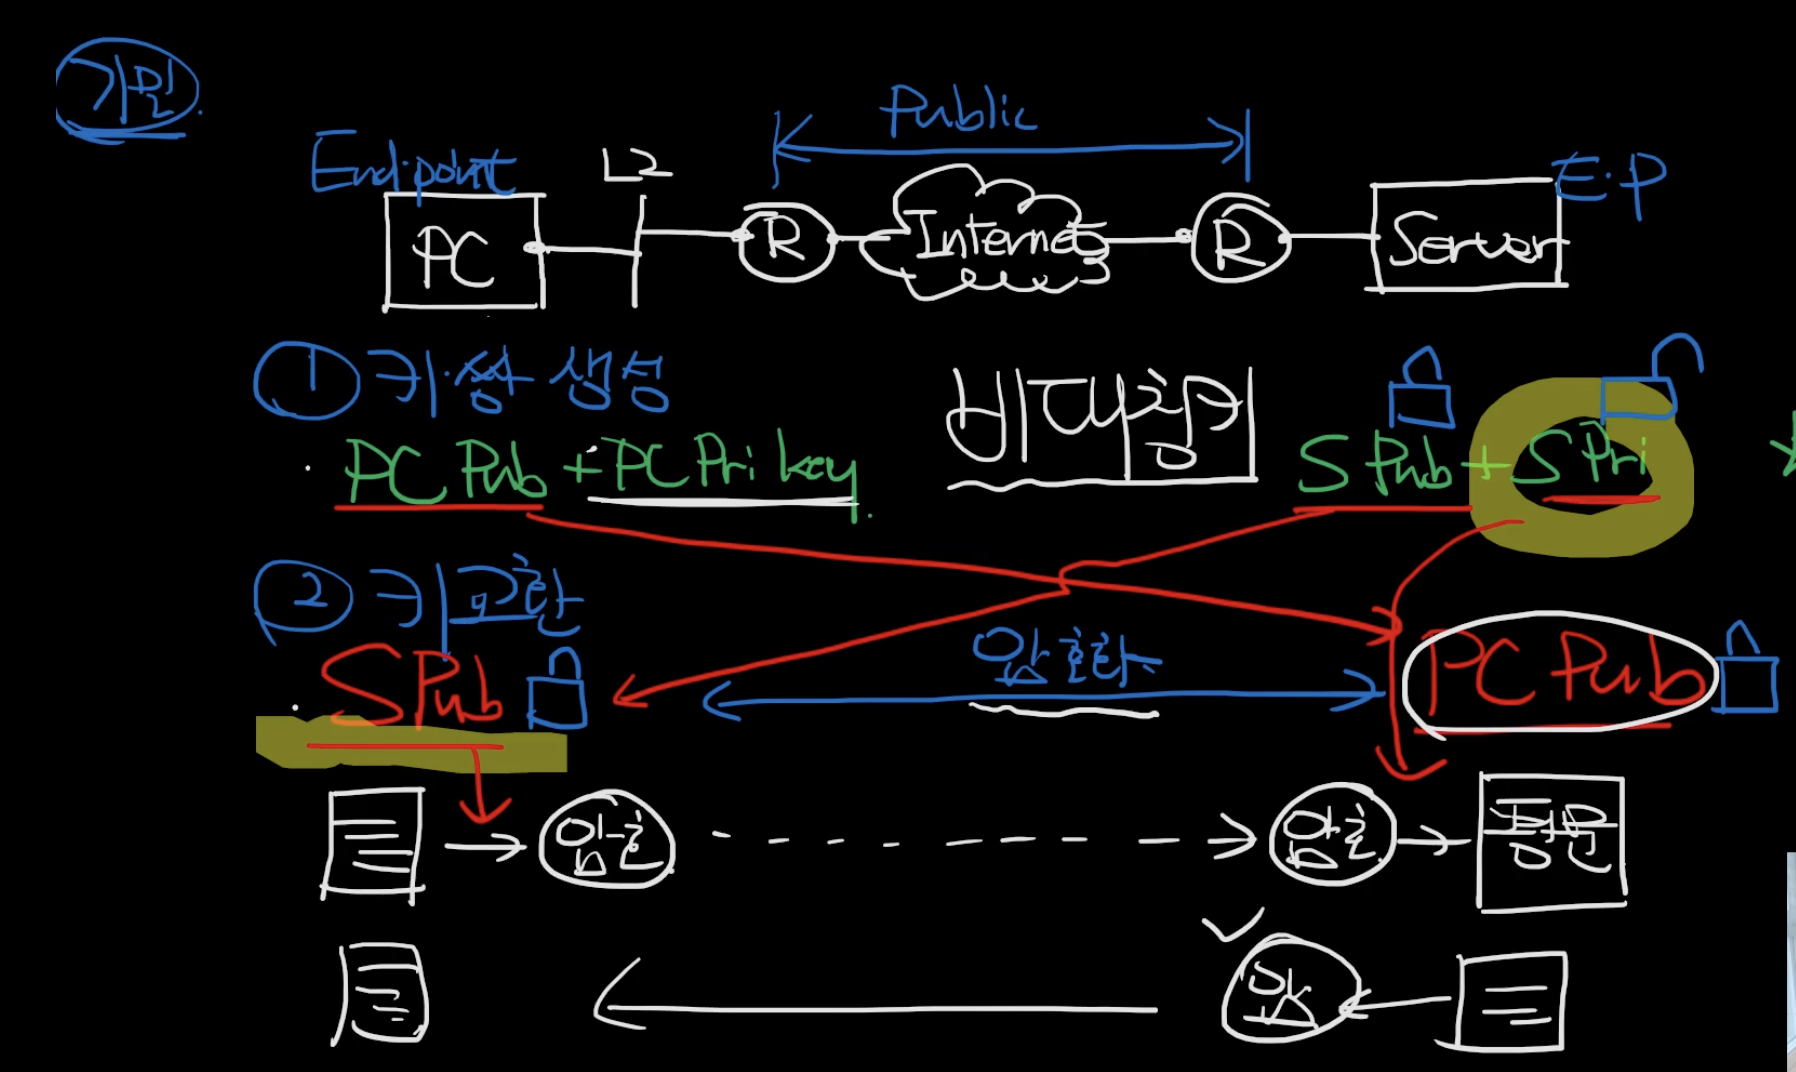 기밀.
Public
Endpoint L2 E.P
PC R Internet R Server
① 키쌍 생성 비대칭키
PC Pub + PC Pri key. S Pub + S Pri
② 키교환
S Pub 암호화 PC Pub
암호 암호 평문
암